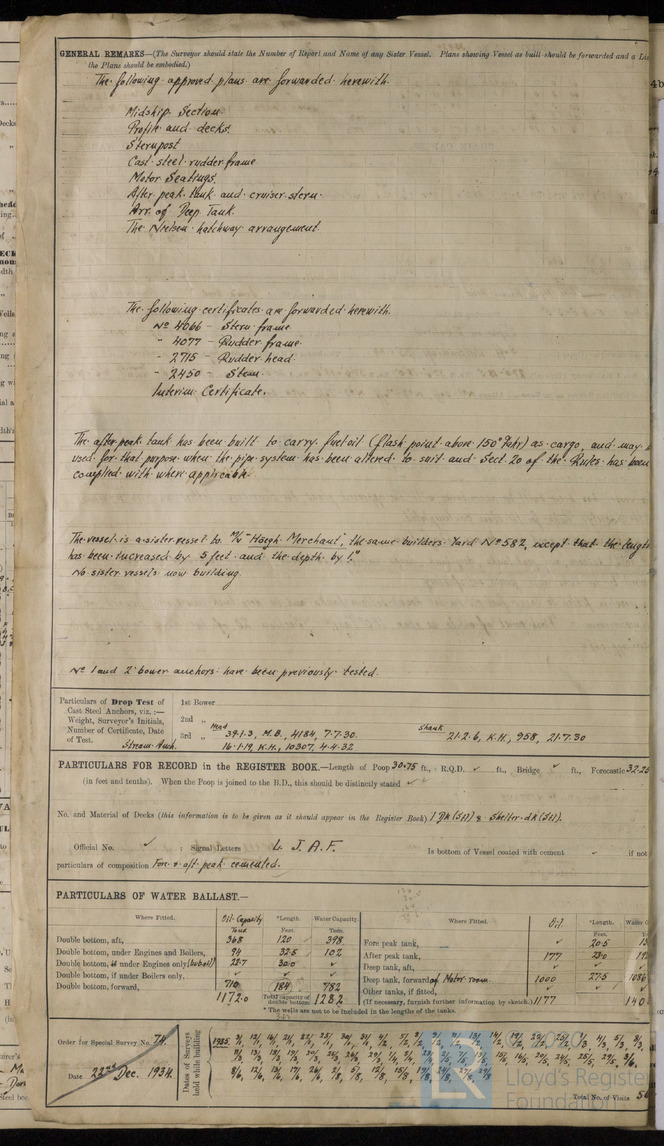 GENERAL REMARKS—(The Surveyor should state the Number of Report and Name of any Sister Vessel. Plans showing Vessel as built should be forwarded and a
the Plans should be embodied.)
The following approved plans are forwarded herewith.
Midship Section
Profile and decks.
Sternpost
Cast steel rudder frame
Motor Seatings.
After peak tank and cruiser stern.
Arr. of Deep Tank.
The Nielsen hatchway arrangement.
The following certificates are forwarded herewith.
No 4066 – Stern frame
" 4077 – Rudder frame.
" 2715 – Rudder head.
" 2450 – Stem.
Interim Certificate.
The after peak tank has been built to carry fuel oil (flash point above 150° Fahr) as cargo, and may
used for that purpose when the pipe system has been altered to suit and Sect. 20 of the Rules has been
complied with where applicable.
The vessel is a sister vessel to M/S "Höegh Merchant", the same builders Yard No 582, except that the length
has been increased by 5 feet and the depth by 1".
No sister vessels now building.
No 1 and 2 bower anchors have been previously tested.
Particulars of Drop Test of
Cast Steel Anchors, viz. :—
Weight, Surveyor's Initials,
Number of Certificate, Date
of Test.
1st Bower
2nd "
3rd " Head 39.1.3, M.B., 4184, 7.7.30. Shank 21.2.6, K.H., 958, 21.7.30
Stream Anch. 16.1.19, K.H., 10307, 4.4.32
PARTICULARS FOR RECORD in the REGISTER BOOK.—Length of Poop 30.75 ft., R.Q.D. ✓ ft., Bridge ✓ ft., Forecastle 32.25
(in feet and tenths). When the Poop is joined to the B.D., this should be distinctly stated ✓
No. and Material of Decks (this information is to be given as it should appear in the Register Book) 1 Dk (Stl) & Shelter dk (Stl).
Official No. ✓ ; Signal Letters L J A F. Is bottom of Vessel coated with cement ✓ if not
particulars of composition Fore & aft peak cemented.
PARTICULARS OF WATER BALLAST.—
Where Fitted. Oil Capacity Tons *Length. Feet. Water Capacity. Tons.
Double bottom, aft, 368 120 398
Double bottom, under Engines and Boilers, 94 32.5 102
Double bottom, if under Engines only 30.0 ✓
Double bottom, if under Boilers only, ✓ ✓ ✓
Double bottom, forward, 710 184 782
1172.0 Total capacity of double bottom 1282
Where Fitted. Oil *Length. Feet. Water
Fore peak tank, ✓ 20.5
After peak tank, 177 23.0
Deep tank, aft, ✓ ✓
Deep tank, forward of Motor room. 1000 27.5 1086
Other tanks, if fitted, ✓ ✓
(If necessary, furnish further information by sketch.) 1177 140
* The wells are not to be included in the lengths of the tanks.
Order for Special Survey No. 74.
Date 22nd Dec. 1934.
Dates of Surveys
held while building
1935:
Total No. of Visits
Lloyd's Register
Foundation